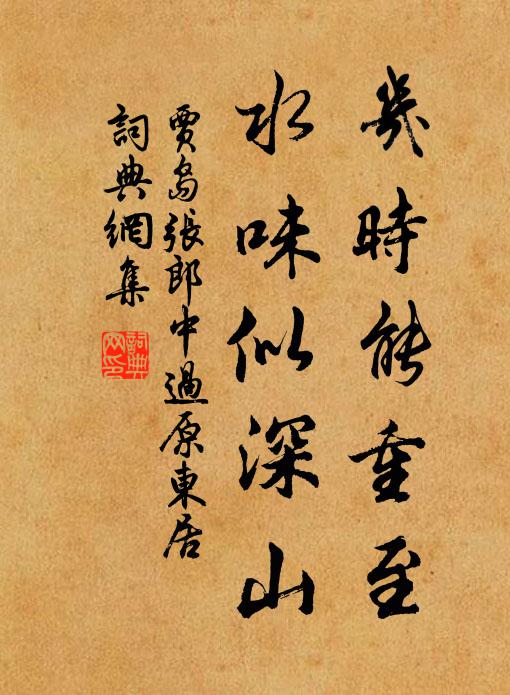 幾時能重至
水味似深山
賈島張郎中過原東居
詞典網集
詞典网印